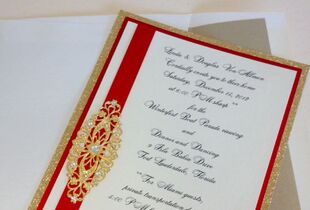 Linda & Douglas Von Allmen
Cordially invite you to their home
Saturday, December 16, 2017
P.M. sharp
for the
Winterfest Boat Parade viewing
and
Dinner and Dancing
2 Isla Bahia Drive
Fort Lauderdale, Florida
For Marina guests,
private transportation